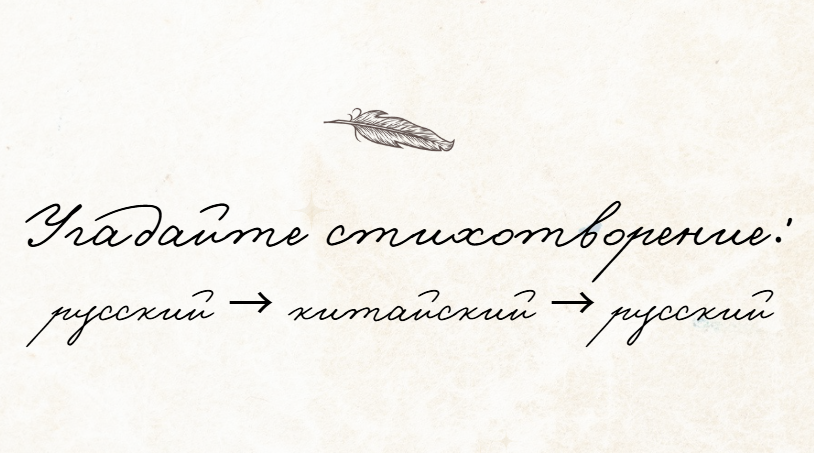 Угадайте стихотворение:
русский → китайский → русский